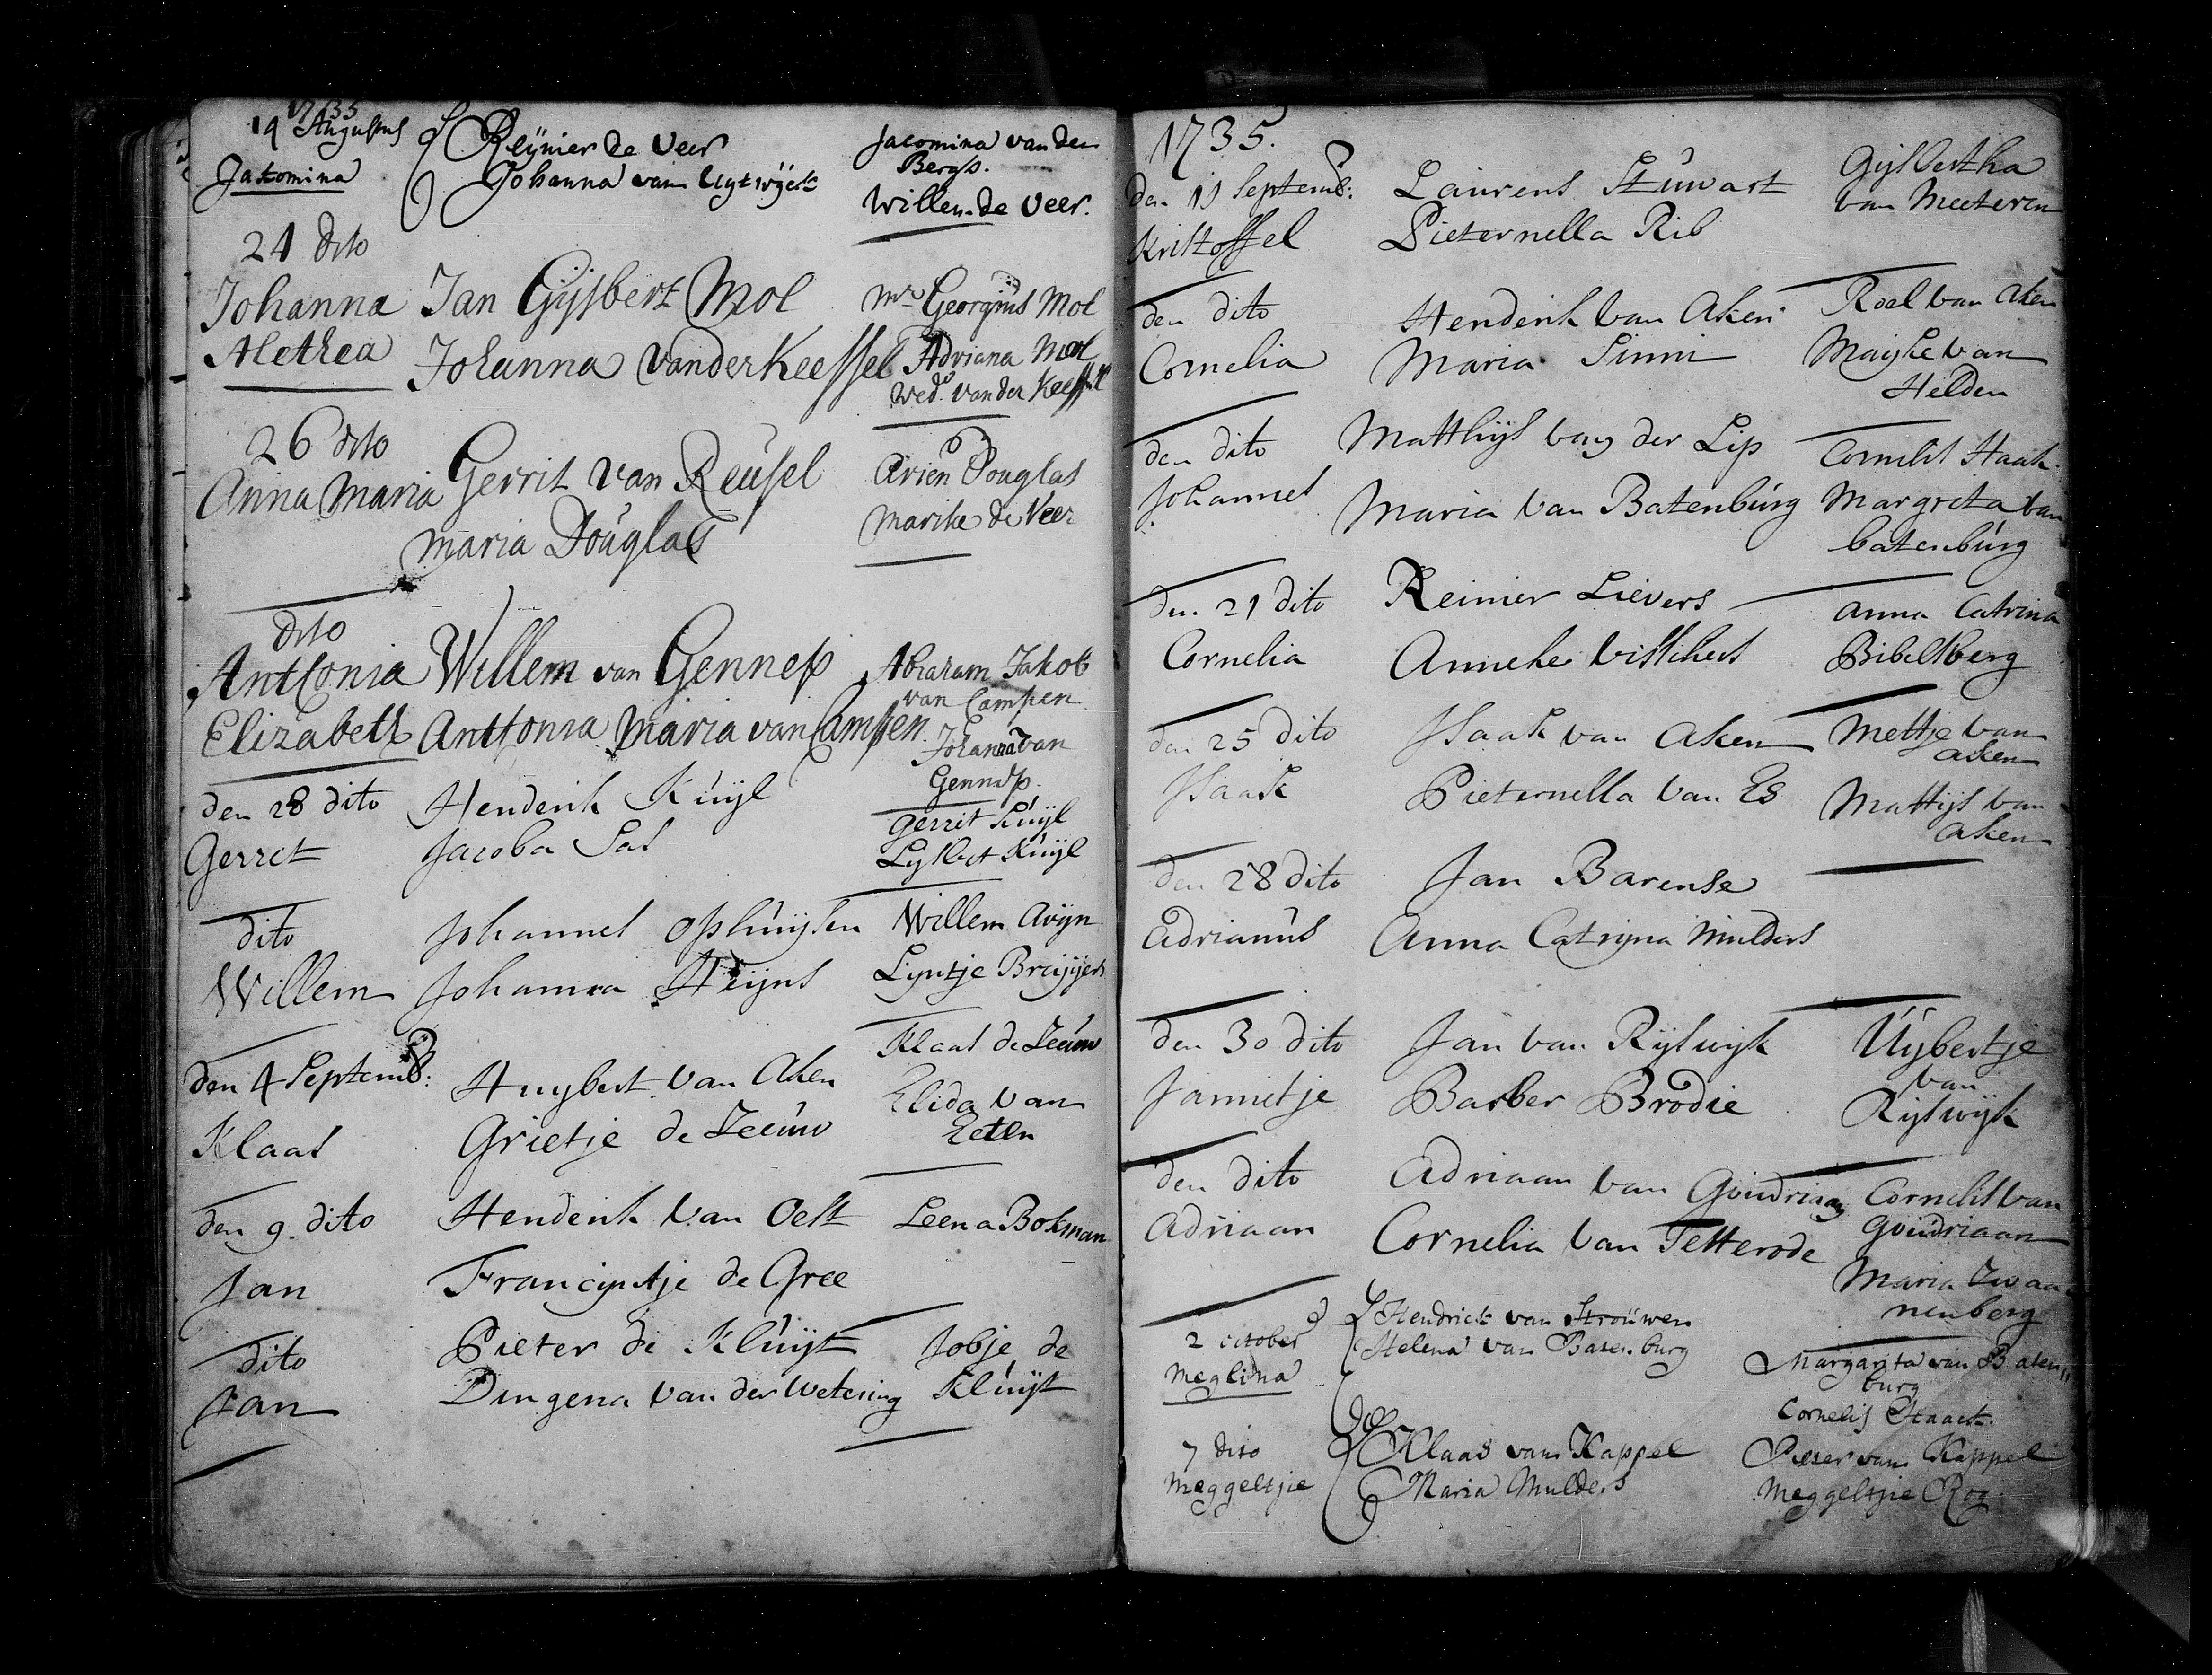 1735
14 Augustus
Jakomina
Reijnier de Veer
Johanna van Uytwijck
Jacomina van den
Bergh.
Willem de Veer.
21 dito
Johanna
Alethea
Jan Gijsbert Mol
Johanna vander Keessel
Mr. Georgius Mol
Adriana Mol
Wed. vander Keessel
26 dito
Anna Maria
Gerrit van Reusel
Maria Douglas
Arien Douglas
Marike de Veer
dito
Anthonia
Elizabeth
Willem van Gennep
Anthonia Maria van Campen
Abraham Jakob
van Campen
Johanna van
Gennep.
den 28 dito
Gerret
Henderik Kuijl
Jacoba Sas
Gerrit Kuijl
Lysbet Kuijl
dito
Willem
Johannes Ophuijsen
Johanna Heijns
Willem
Lyntje
den 4 Septemb:
Klaas
Huybert van Aken
Grietje de Zeeuw
Klaas de Zeeuw
Elida van
Eeten
den 9. dito
Jan
Henderik van Oest
Francyntje de Gree
Leena Bokman
dito
Jan
Pieter de Kluijt
Dingena van der Wetering
Jobje de
Kluijt
1735.
den 11 Septemb:
Kristoffel
Laurens Stuwart
Pieternella Rib
Gijsbertha
van Meeteren
den dito
Cornelia
Henderik van Aken
Maria Sinni
Roel van Aken
Mayke van
Helden
den dito
Johannes
Matthijs van der Lip
Maria van Batenburg
Cornelis Haak
Margreta van
batenburg
den 21 dito
Cornelia
Reinier Lievers
Anneke Visschers
Anna Catrina
Bibelsberg
den 25 dito
Isaak
Isaak van Aken
Pieternella van Es
Metje van
aken
Mattijs van
aken
den 28 dito
Adrianus
Jan Barense
Anna Catryna Mulders
den 30 dito
Jannetje
Jan van Rijswijk
Barber Brodie
Uijbertje
van
Rijswijk
den dito
Adriaan
Adriaan van Goudriaan
Cornelia van Tetterode
Cornelis van
Goudriaan
Maria Zwaa
nenberg
2 october
Meglina
Hendrick van Strouwen
Helena van Batenburg
Margarita van Baten,,
burg
Cornelis Haack.
7 dito
Meggeltjie
Klaas van Kappel
Maria Mulders
Pieter van Kappel
Meggeltjie Rog